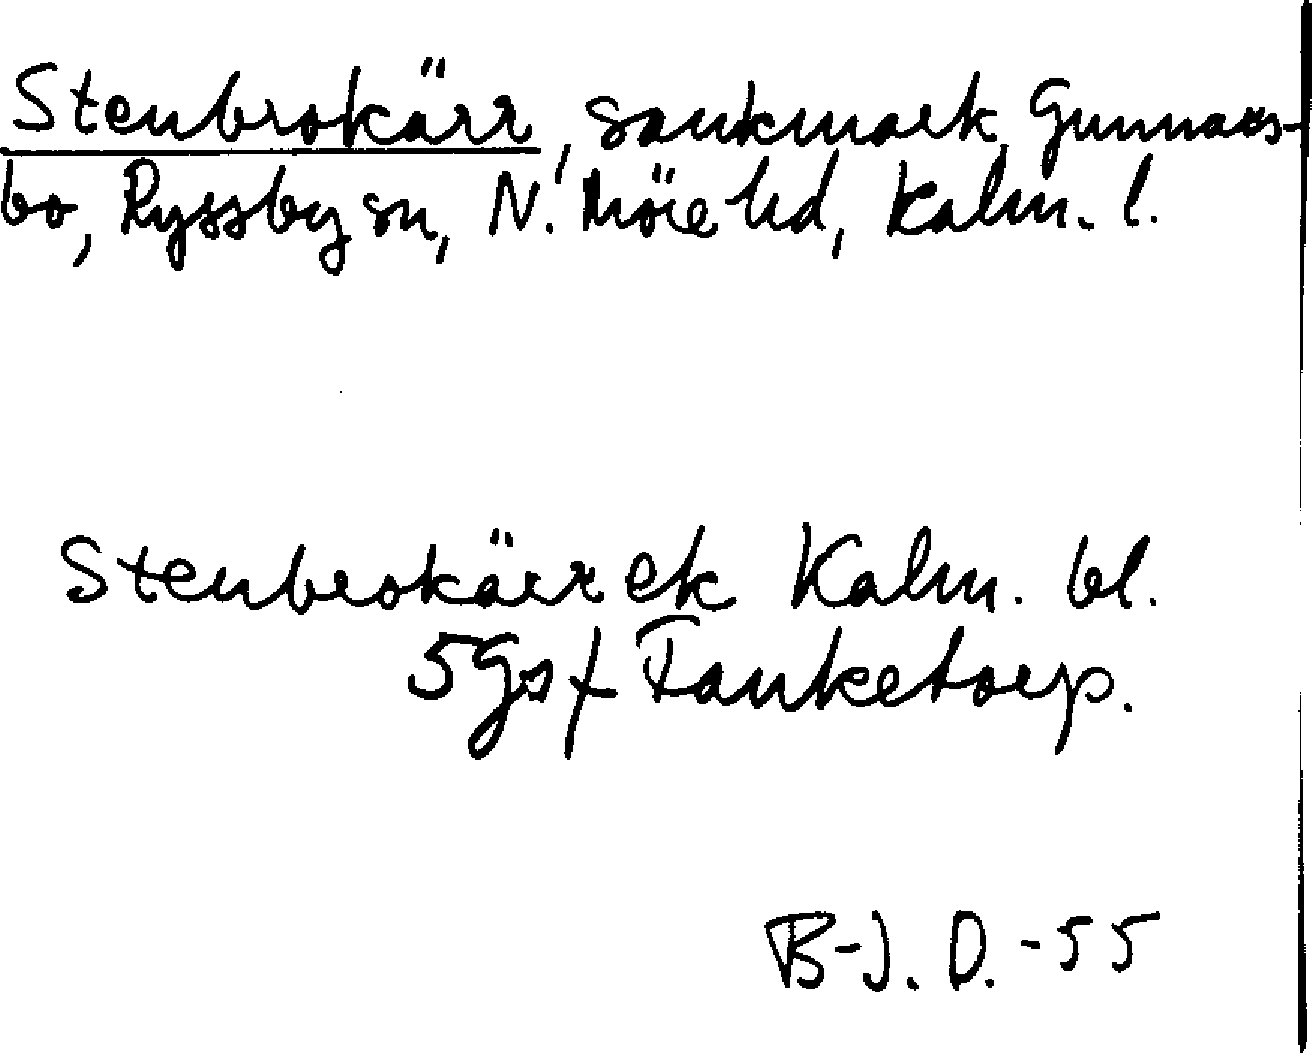 Stenbrokärr, sankmark, Gunnars-
bo, Ryssby sn, N. Möre hd, Kalm. l.
Stenbrokärr ek Kalm. bl.
5 Gsf Tanketorp.
B-J. D. -55